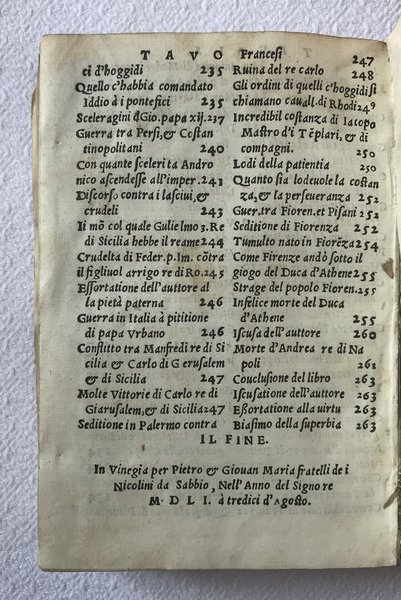 TAVO
ci d'hoggidi 235
Quello c'habbia comandato
Iddio à i pontefici 235
Sceleragini d̃ Gio. papa xij. 237
Guerra tra Persi, & Costan
tinopolitani 240
Con quante sceleri ta Andro
nico ascendesse all'imper. 241
Discorso contra i lasciui, &
crudeli 243
Il mõ col quale Gulielmo 3. Re
di Sicilia hebbe il reame 244
Crudelta di Feder. p. Im. cõtra
il figliuol arrigo re di Ro. 245
Essortatione dell'auttore al
la pietà paterna 246
Guerra in Italia à pititione
di papa Vrbano 246
Conflitto tra Manfredi re di Si
cilia & Carlo di Gierusalem
& di Sicilia 247
Molte Vittorie di Carlo re di
Giarusalem, & di Sicilia 247
Seditione in Palermo contra
Francesi 247
Ruina del re carlo 248
Gli ordini di quelli c'hoggidi si
chiamano cauall. di Rhodi 249
Incredibil costanza di Iacopo
Mastro d'i Tẽplari, & di
compagni. 250
Lodi della patientia 250
Quanto sia lodeuole la costan
za, & la perseueranza 252
Guer. tra Fioren. et Pisani 252
Seditione di Fiorenza 252
Tumulto nato in Fiorẽza 254
Come Firenze andò sotto il
giogo del Duca d'Athene 255
Strage del popolo Fioren. 255
Infelice morte del Duca
d'Athene 255
Iscusa dell'auttore 260
Morte d'Andrea re di Na
poli 261
Couclusione del libro 263
Iscusatione dell'auttore 263
Essortatione alla uirtu 263
Biasimo della superbia 263
IL FINE.
In Vinegia per Pietro & Giouan Maria fratelli de i
Nicolini da Sabbio, Nell'Anno del Signore
M. D L I. à tredici d'Agosto.